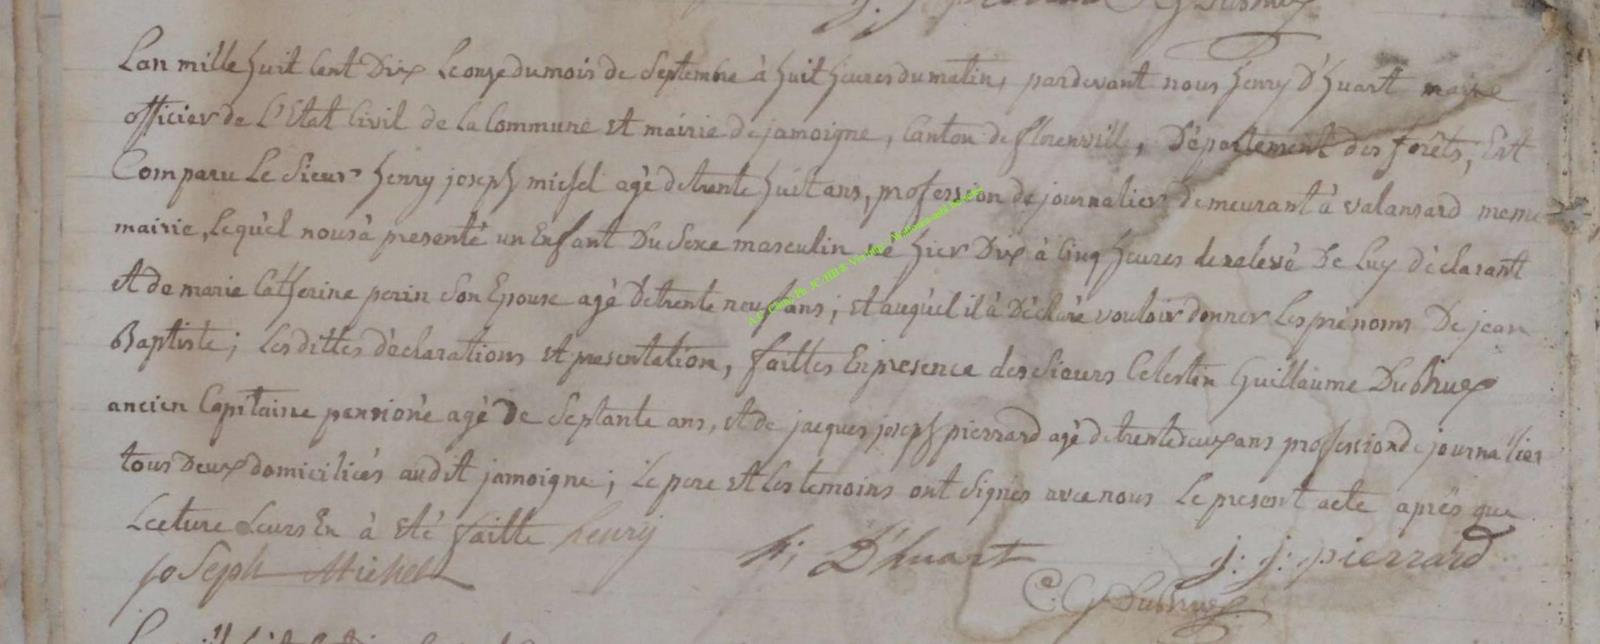 Lan mille huit Cent Dix Le onze du mois de Septembre à huit heures du matin, pardevant nous henry D'huart maire
officier de L'Etat Civil de La Commune et mairie de jamoigne, Canton de florenvill, Département des forêts; Est
Comparu Le Sieur henry joseph michel agé de trente huit ans, profession de journalier demeurant à valansard meme
mairie, Lequel nous à presenté un Enfant Du Sexe masculin né hier Dix à Cinq heures de relevé De Luy déclarant
et de marie Catherine perin Son Epouse agé De trente neuf ans; et auquel il à Déclaré vouloir donner Les prénoms De jean
Baptiste; Les dittes déclarations et presentation, faittes En presence des Sieurs Celestin Guillaume Dubhuex
ancien Capitaine pensioné agé De Septante ans, et de jacques joseph pierrard agé de trente deux ans profession de journalier
tous Deux domiciliés audit jamoigne; Le pere et Les temoins ont Signés avec nous Le present acte après que
Lecture Leurs En à eté faitte henry
joseph Michel h; D'huart j: j: pierrard
C: G Dubhuex